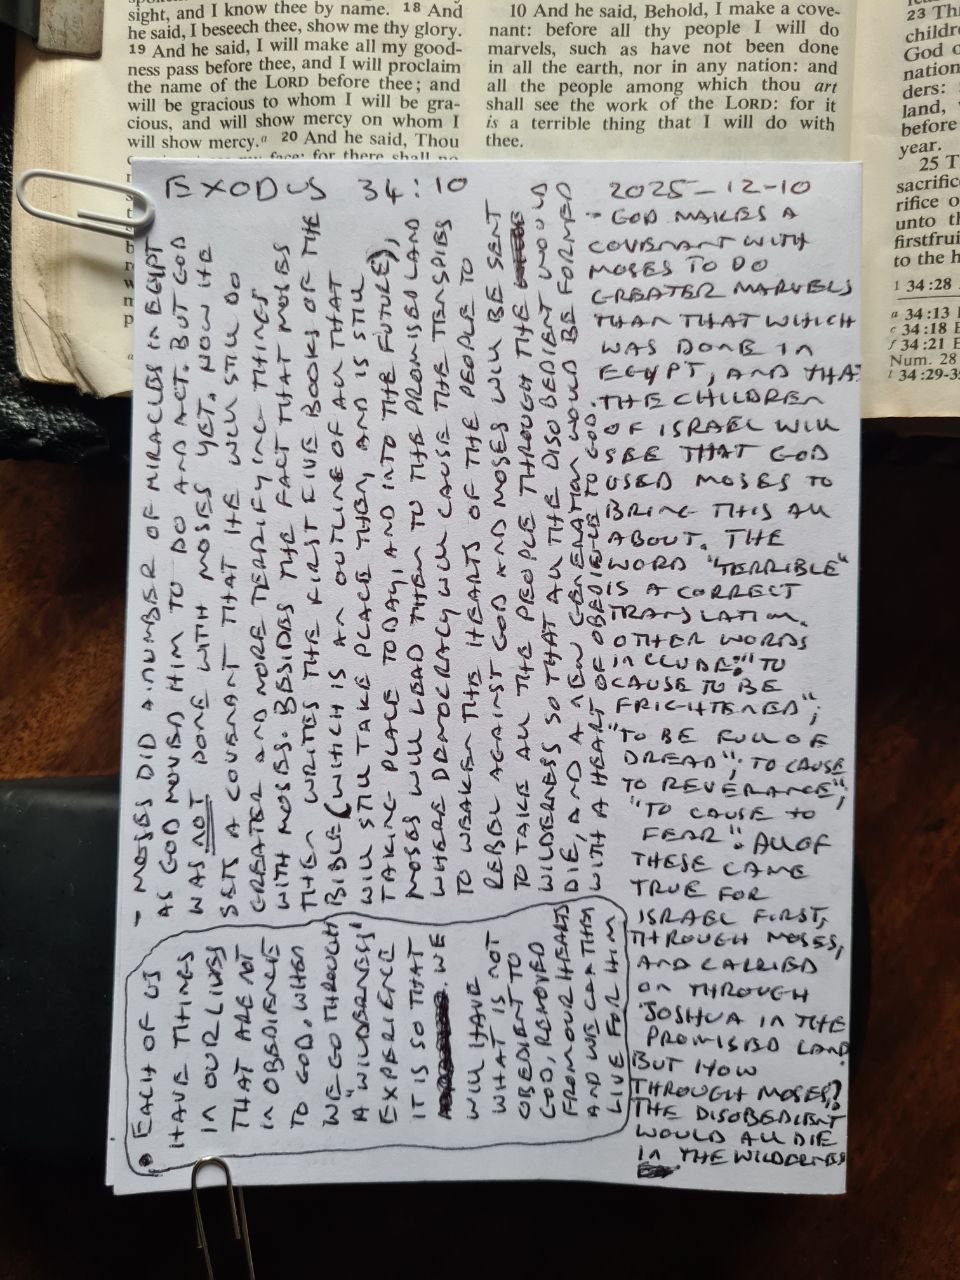 sight, and I know thee by name. 18 And
he said, I beseech thee, show me thy glory.
19 And he said, I will make all my good-
ness pass before thee, and I will proclaim
the name of the LORD before thee; and
will be gracious to whom I will be gra-
cious, and will show mercy on whom I
will show mercy.a 20 And he said, Thou
face: for there shall no
10 And he said, Behold, I make a cove-
nant: before all thy people I will do
marvels, such as have not been done
in all the earth, nor in any nation: and
all the people among which thou art
shall see the work of the LORD: for it
is a terrible thing that I will do with
thee.
23
children
God
nation
ders:
land,
before
year.
25
sacrific
rifice o
unto th
firstfrui
to the h
1 34:28
a 34:13
c 34:18
f 34:21
Num. 28
34:29-3
EXODUS 34:10
2025-12-10
- GOD MAKES A
COVENANT WITH
MOSES TO DO
GREATER MARVELS
THAN THAT WHICH
WAS DONE IN
EGYPT, AND THAT
THE CHILDREN
OF ISRAEL WILL
SEE THAT GOD
USED MOSES TO
BRING THIS ALL
ABOUT. THE
WORD "TERRIBLE"
IS A CORRECT
TRANSLATION.
OTHER WORDS
INCLUDE: "TO
CAUSE TO BE
FRIGHTENED";
"TO BE FULL OF
DREAD"; TO CAUSE
TO REVERANCE";
"TO CAUSE TO
FEAR". ALL OF
THESE CAME
TRUE FOR
ISRAEL FIRST,
THROUGH MOSES,
AND CARRIED
ON THROUGH
JOSHUA IN THE
PROMISED LAND.
BUT HOW
THROUGH MOSES?
THE DISOBEDIENT
WOULD ALL DIE
IN THE WILDERNESS
- MOSES DID A NUMBER OF MIRACLES IN EGYPT
AS GOD MOVED HIM TO DO AND ACT. BUT GOD
WAS NOT DONE WITH MOSES YET. NOW HE
SETS A COVENANT THAT HE WILL STILL DO
GREATER AND MORE TERRIFYING THINGS
WITH MOSES. BESIDES THE FACT THAT MOSES
THEN WRITES THE FIRST FIVE BOOKS OF THE
BIBLE (WHICH IS AN OUTLINE OF ALL THAT
WILL STILL TAKE PLACE THEN, AND IS STILL
TAKING PLACE TODAY, AND INTO THE FUTURE),
MOSES WILL LEAD THEM TO THE PROMISED LAND
WHERE DEMOCRACY WILL CAUSE THE TEN SPIES
TO WEAKEN THE HEARTS OF THE PEOPLE TO
REBEL AGAINST GOD AND MOSES WILL BE SENT
TO TAKE ALL THE PEOPLE THROUGH THE
WILDERNESS SO THAT ALL THE DISOBEDIENT WOULD
DIE, AND A NEW GENERATION WOULD BE FORMED
WITH A HEART OF OBEDIENCE TO GOD.
• EACH OF US
HAVE THINGS
IN OUR LIVES
THAT ARE NOT
IN OBEDIENCE
TO GOD. WHEN
WE GO THROUGH
A "WILDERNESS"
EXPERIENCE
IT IS SO THAT
WE
WILL HAVE
WHAT IS NOT
OBEDIENT TO
GOD, REMOVED
FROM OUR HEARTS
AND WE CAN THEN
LIVE FOR HIM